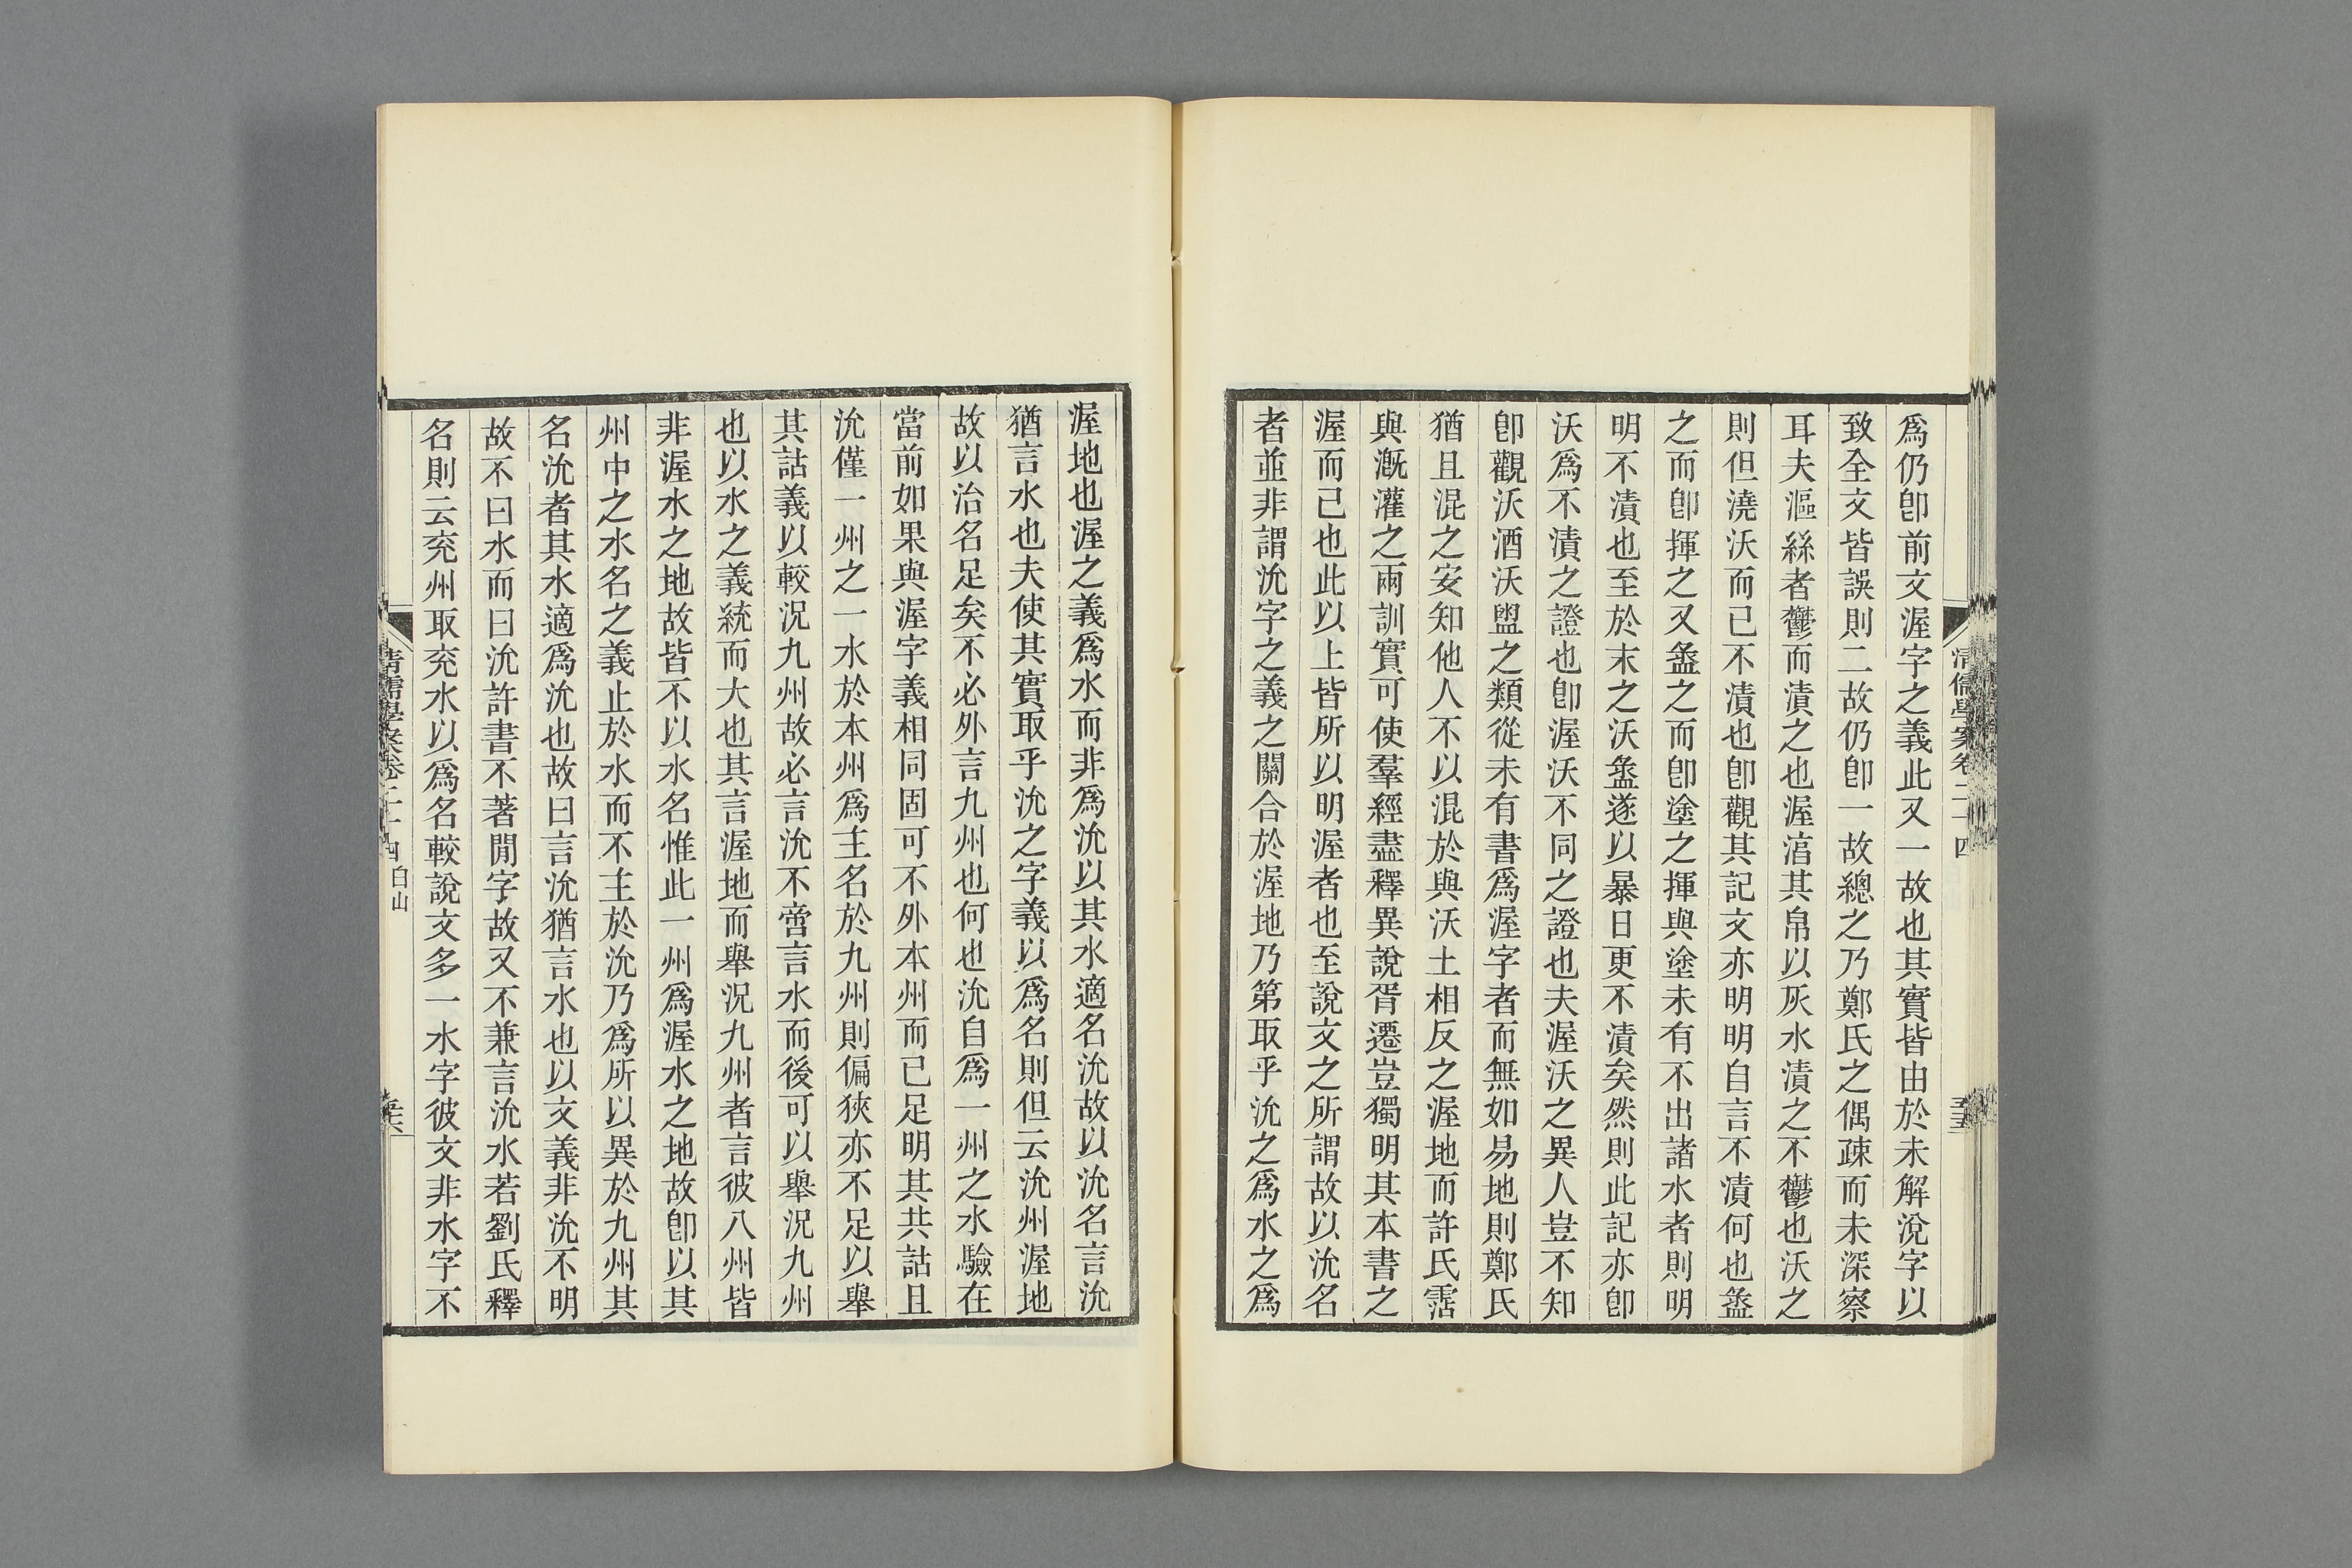 爲仍卽前文渥字之義此又一故也其實皆由於未解涗字以
致全文皆誤則二故仍卽一故總之乃鄭氏之偶疎而未深察
耳夫漚絲者鬱而漬之也渥淯其帛以灰水漬之不鬱也沃之
則但澆沃而已不漬也卽觀其記文亦明明自言不漬何也盝
之而卽揮之又盝之而卽塗之揮與塗未有不出諸水者則明
明不漬也至於末之沃盝遂以暴日更不漬矣然則此記亦卽
沃爲不漬之證也卽渥沃不同之證也夫渥沃之異人豈不知
卽觀沃酒沃盥之類從未有書爲渥字者而無如易地則鄭氏
猶且混之安知他人不以混於與沃土相反之渥地而許氏霑
與漑灌之兩訓實可使羣經盡釋異說胥遷豈獨明其本書之
渥而已也此以上皆所以明渥者也至說文之所謂故以沇名
者並非謂沇字之義之關合於渥地乃第取乎沇之爲水之爲
清儒學案卷二十四
渥地也渥之義爲水而非爲沇以其水適名沇故以沇名言沇
猶言水也夫使其實取乎沇之字義以爲名則但云沇州渥地
故以治名足矣不必外言九州也何也沇自爲一州之水驗在
當前如果與渥字義相同固可不外本州而已足明其共詁且
沇僅一州之一水於本州爲主名於九州則偏狹亦不足以舉
其詁義以較況九州故必言沇不啻言水而後可以舉況九州
也以水之義統而大也其言渥地而舉況九州者言彼八州皆
非渥水之地故皆不以水名惟此一州爲渥水之地故卽以其
州中之水名之義止於水而不主於沇乃爲所以異於九州其
名沇者其水適爲沇也故曰言沇猶言水也以文義非沇不明
故不曰水而曰沇許書不著閒字故又不兼言沇水若劉氏釋
名則云兖州取兖水以爲名較說文多一水字彼文非水字不
清儒學案卷二十四 白山